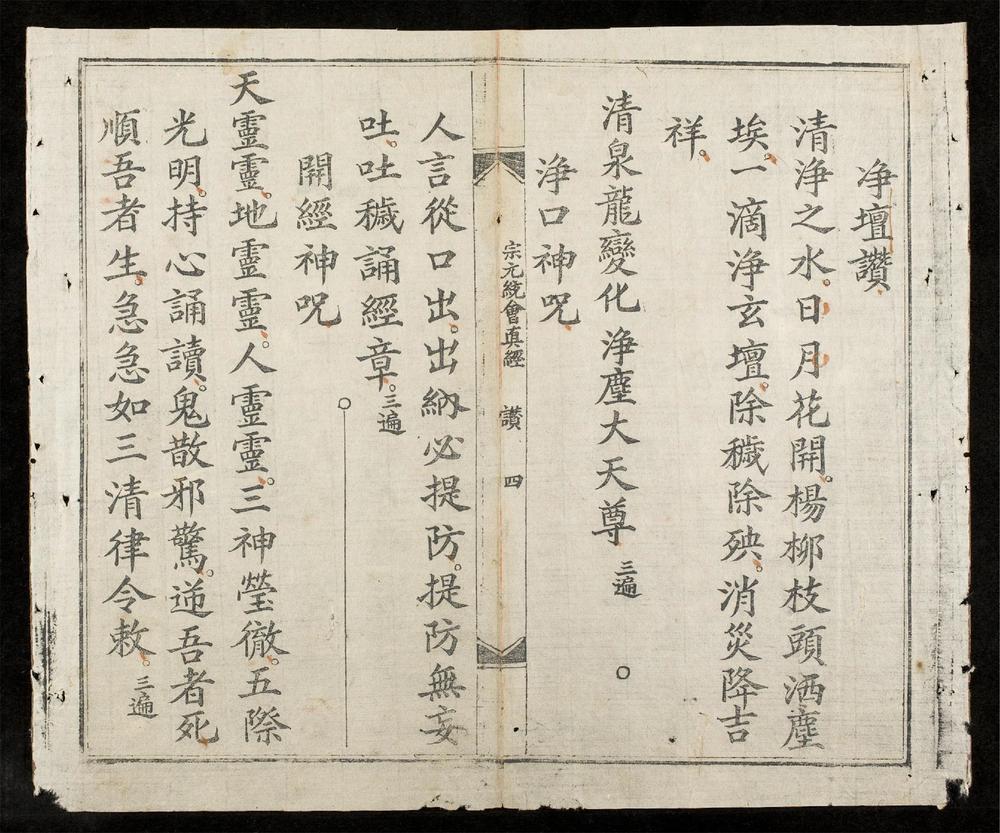 净壇讚
清浄之水。日月花開。楊柳枝頭洒塵
埃。一滴浄玄壇。除穢除殃。消災降吉
祥。
清泉龍變化 浄塵大天尊 三遍 ○
浄口神咒
宗元統會真經 讚 四
人言從口出。出納必提防。提防無妄
吐。吐穢誦經章。三遍 ○
開經神咒
天靈靈。地靈靈。人靈靈。三神瑩徹。五際
光明。持心誦讀。鬼散邪驚。逆吾者死
順吾者生。急急如三清律令敕。三遍